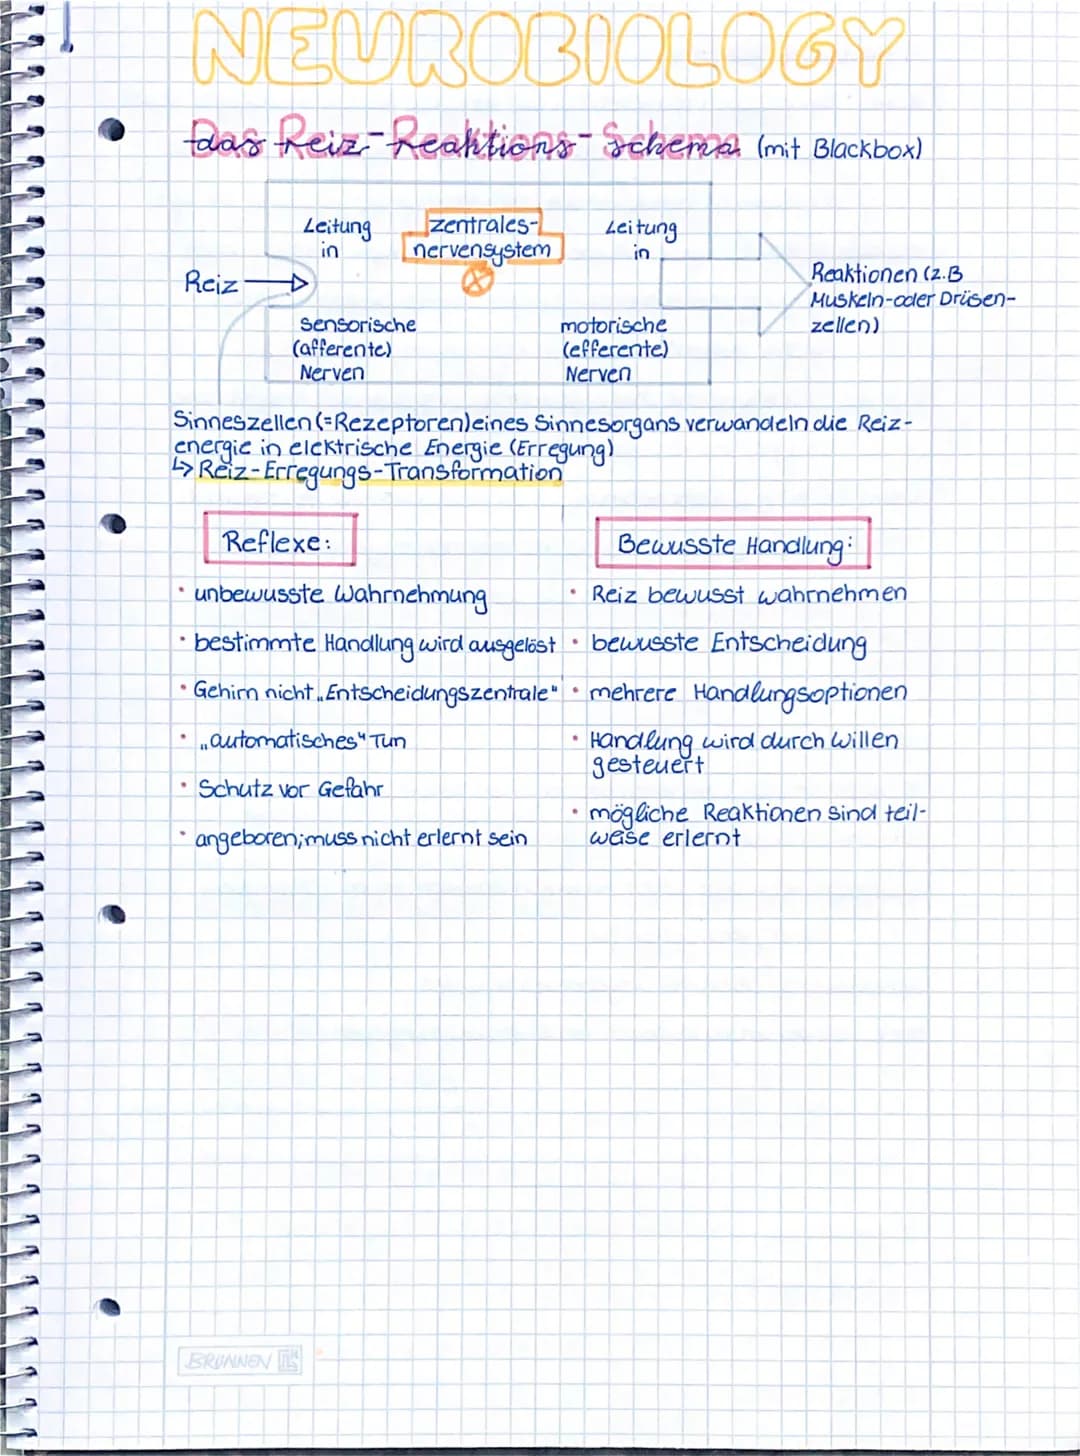 NEUROBIOLOGY
das Reiz-Reaktions-Schema (mit Blackbox)
Leitung
in
zentrales-
nervensystem
Leitung
in
Reiz
Reaktionen (z.B
Muskeln-oder Drüsen-
zellen)
sensorische
(afferente)
Nerven
motorische
(efferente)
Nerven
Sinneszellen (=Rezeptoren) eines Sinnesorgans verwandeln die Reiz-
energie in elektrische Energie (Erregung)
↳ Reiz-Erregungs-Transformation
Reflexe:
• unbewusste Wahrnehmung
• bestimmte Handlung wird ausgelöst
• Gehirn nicht „Entscheidungszentrale"
• „automatisches" Tun
• Schutz vor Gefahr
• angeboren; muss nicht erlernt sein
Bewusste Handlung:
• Reiz bewusst wahrnehmen
• bewusste Entscheidung
• mehrere Handlungsoptionen
• Handlung wird durch Willen
gesteuert
• mögliche Reaktionen sind teil-
weise erlernt
BRUNNEN